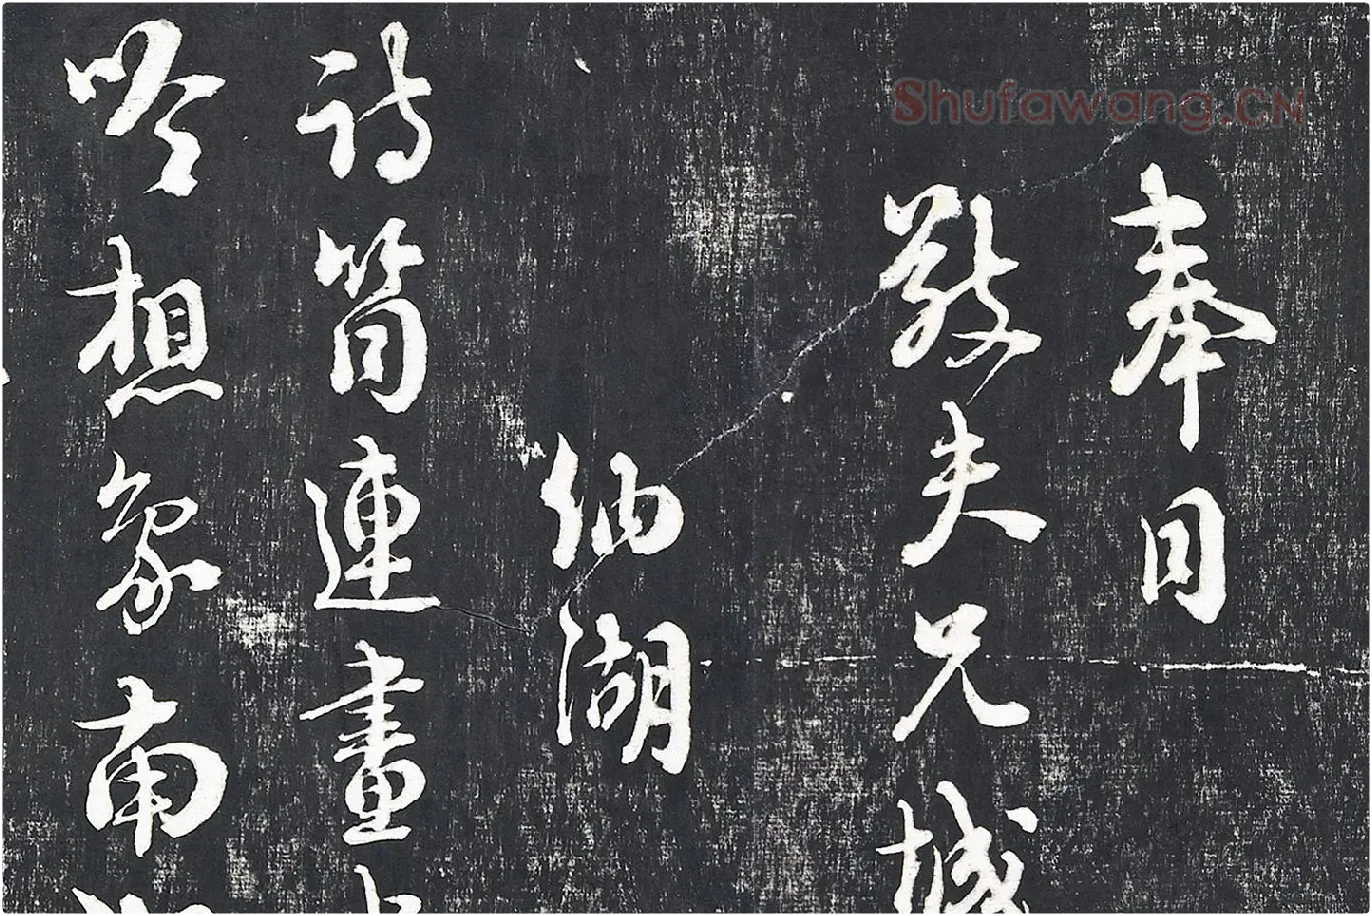 Shufawang.CN
奉同
敬夫兄城
納湖
詩筒連畫
吟想象南